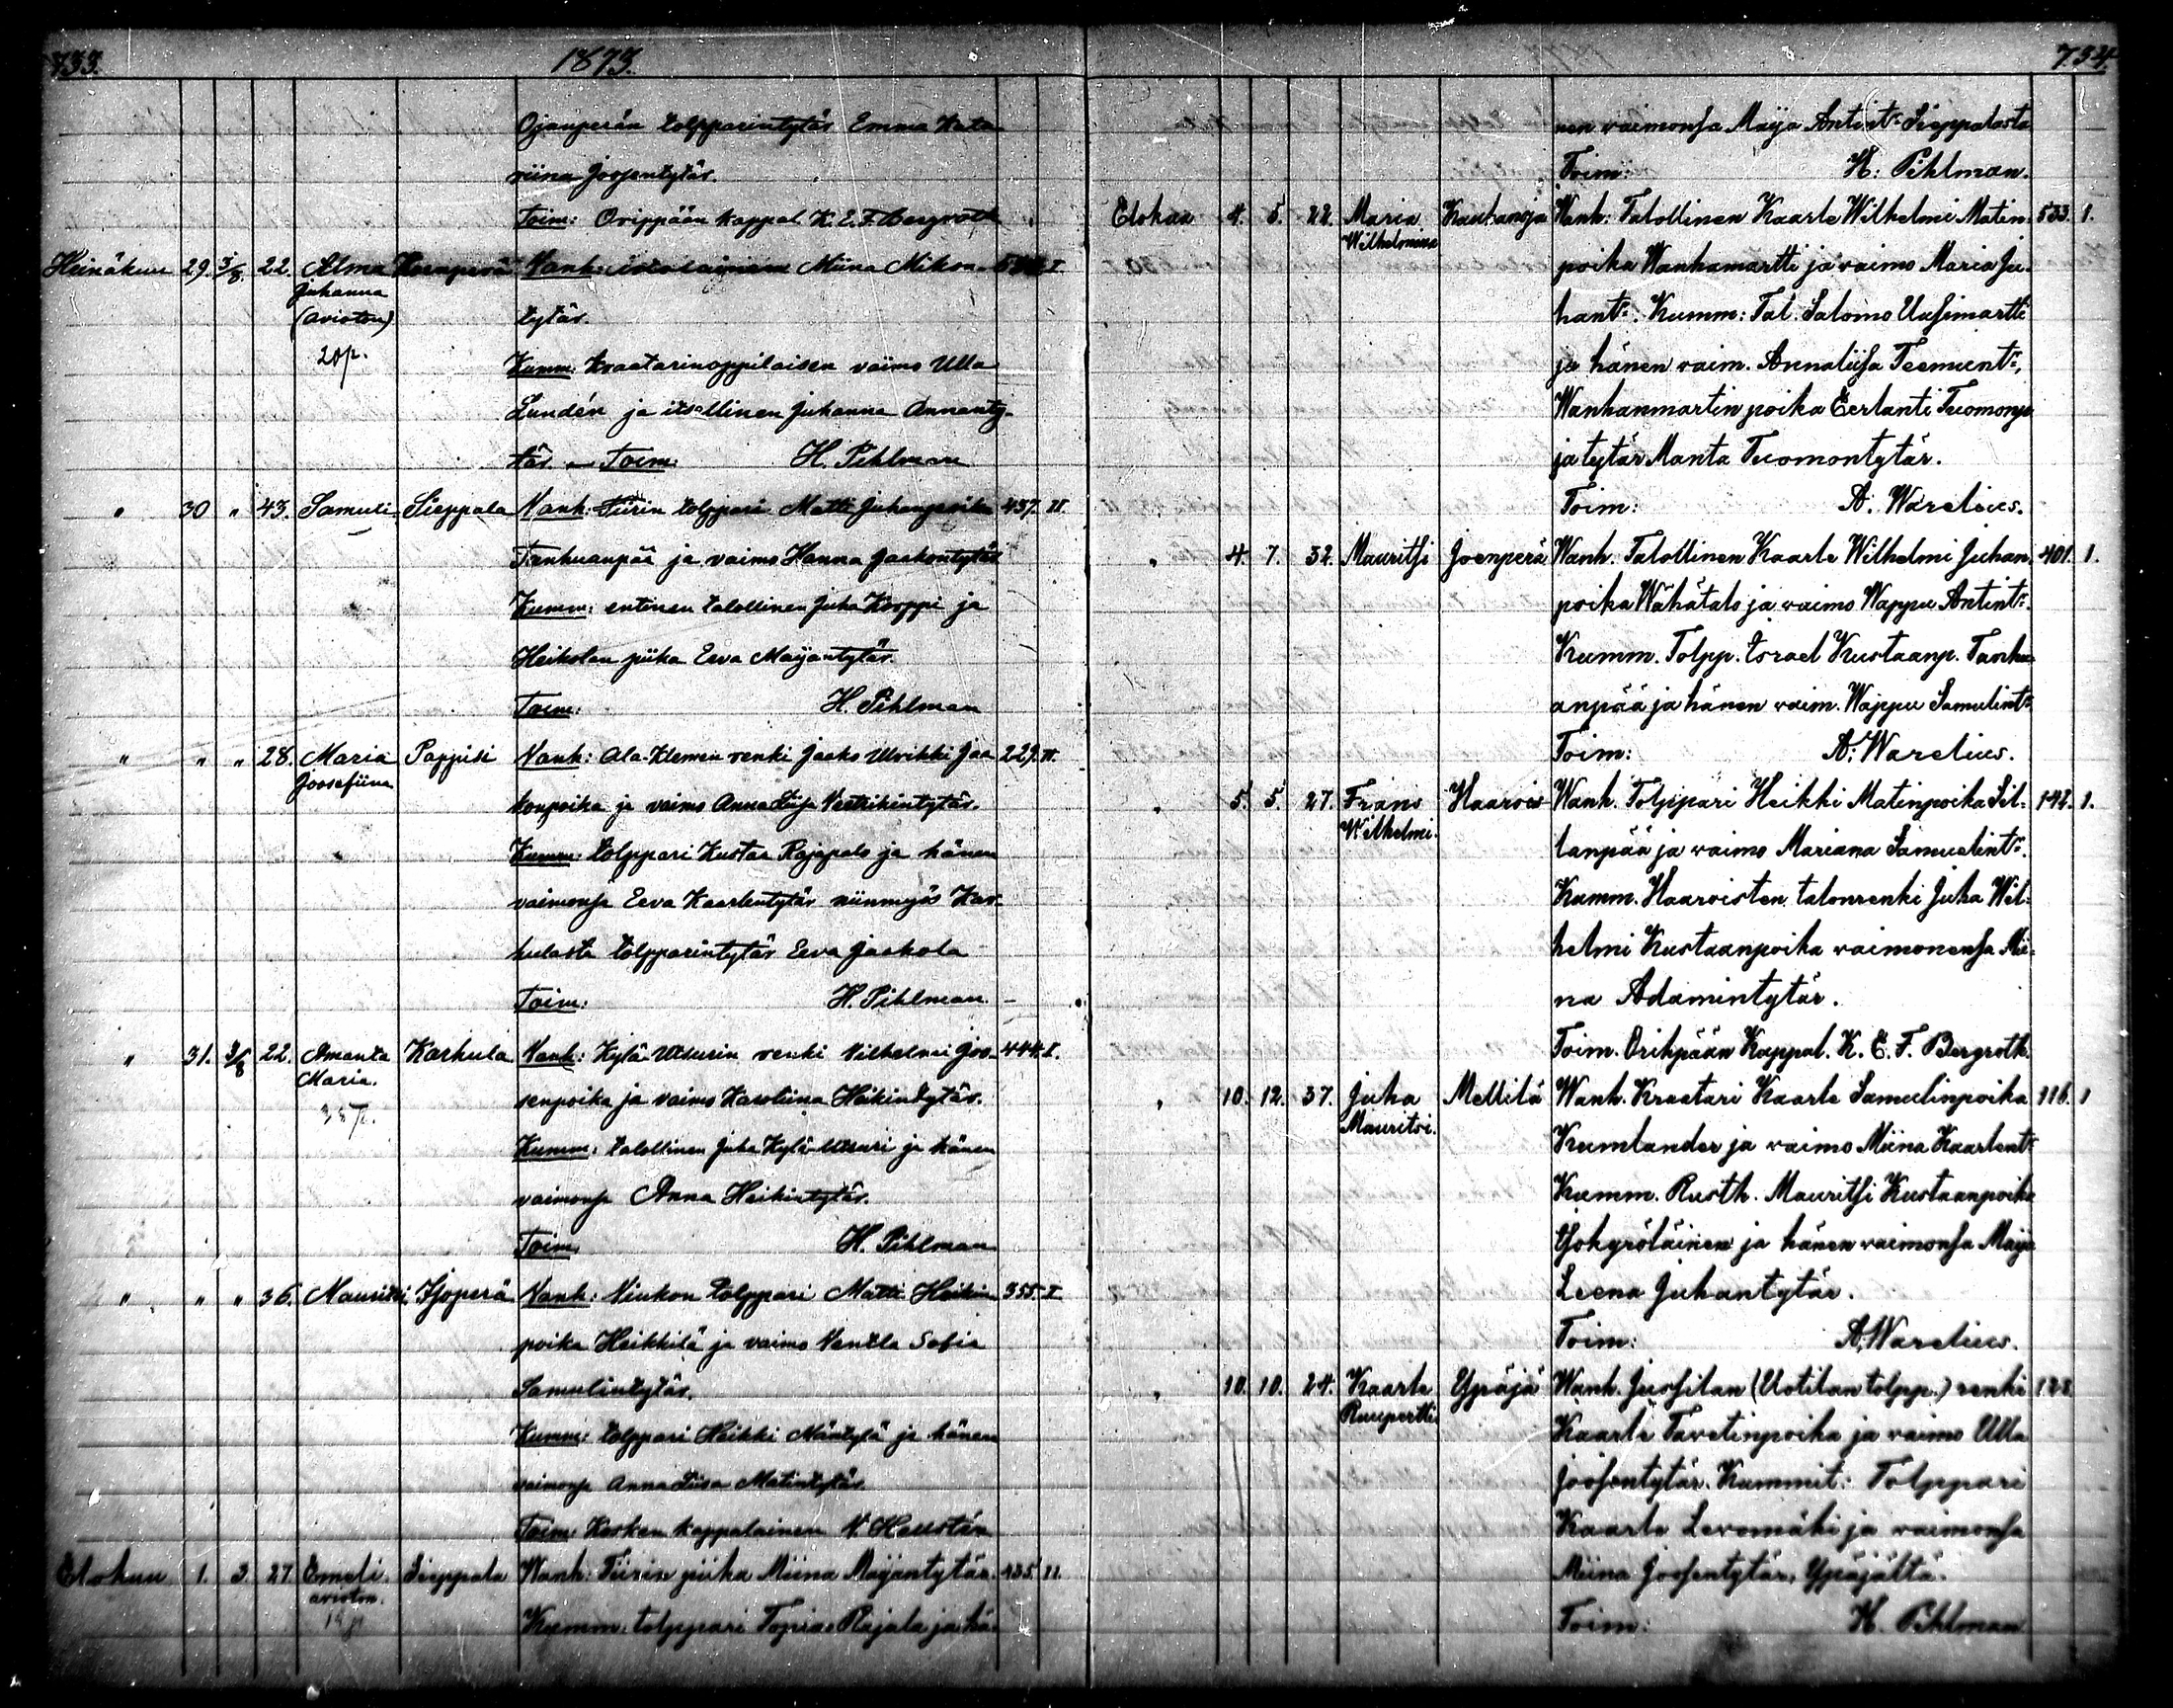 733. 1873.
Ojanperän tolpparintytär Emma Kata
riina Joosentytär.
Toim: Orippään kappal. K. E. F. Bergroth
Heinäkuu 29. 3/8. 22. Alma Joenperä Vanh: itsellinen Miina Mikon- I
Juhanna
(avioton) tytär.
20 p. Kumm: kraatarinoppilaisen vaimo Ulla
Lundén ja itsellinen Juhanna Annanty-
tär. – Toim: H. Pihlman
" 30 " 43. Samuli Sieppala Vanh: Tiirin tolppari Matti Juhanpoika 437. II.
Tanhuanpää ja vaimo Hanna Jaakontytär
Kumm: entinen talollinen Juha Korppi ja
Heikolan piika Eeva Maijantytär.
Toim: H. Pihlman
" " " 28. Maria Pappisi Vanh: Ala-Klemen renki Jaako Ulrikki Jaa 229. II.
Joosefiina
konpoika ja vaimo Anna Liisa Veetrikintytär.
Kumm: tolppari Kustaa Rajapalo ja hänen
vaimonsa Eeva Kaarlentytär niinmyös Kar-
hulasta tolpparintytär Eeva Jaakola
Toim: H. Pihlman. –
" 31. 3/8 22. Amanta Karhula Vanh: Kylä-Uusurin renki Vilhelmi Joo- 444. I.
Maria.
38 p. senpoika ja vaimo Karoliina Heikintytär.
Kumm: talollinen Juha Kylä-Uusuri ja hänen
vaimonsa Anna Heikintytär.
Toim: H. Pihlman
" " " 36. Mauritsi Isoperä Vanh: Niukon tolppari Matti Heikin 355. I
poika Heikkilä ja vaimo Ventla Sofia
Samulintytär.
Kumm: tolppari Heikki Mäntylä ja hänen
vaimonsa Anna Liisa Matintytär
Toim: Kosken kappalainen V. Hellstén
Elokuu 1. 3. 27 Emeli Sieppala Wanh: Tiirin piika Miina Maijantytär. 435. II.
avioton.
19 p Kumm: tolppari Topias Rajala ja hä-
734.
nen vaimonsa Maija Antint: Sieppalasta
Toim: H: Pihlman.
Elokuu 4. 5. 22. Maria Kauhanoja Wanh: Talollinen Kaarle Wilhelmi Matin 533. 1.
Wilhelmina
poika Wanhamartti ja vaimo Maria Ju-
hant:. Kumm: Tal. Salomo Uusimartti
ja hänen vaim. Annaliisa Teemunt:,
Wanhanmartin poika Eerlanti Tuomonp.
ja tytär Manta Tuomontytär.
Toim: A. Warelius.
" 4. 7. 32. Mauritsi Joenperä Wanh. Talollinen Kaarle Wilhelmi Juhan 401. 1.
poika Wähätalo ja vaimo Wappu Antint:.
Kumm. Tolpp. Israel Kustaanp. Tanhu-
anpää ja hänen vaim. Wappu Samulint:
Toim: A. Warelius.
" 5. 5. 27. Frans Haarois Wanh. Tolppari Heikki Matinpoika Sil- 142. 1.
Wilhelmi.
lanpää ja vaimo Mariana Samuelint:.
Kumm. Haaroisten talonrenki Juha Wil-
helmi Kustaanpoika vaimonensa Mii-
na Adamintytär.
Toim. Orihpään Kappal. K. E. F. Bergroth.
" 10. 12. 37. Juha Mellilä Wanh. Kraatari Kaarle Samulinpoika 116. 1
Mauritsi.
Kumlander ja vaimo Miina Kaarlent:
Kumm. Rusth. Mauritsi Kustaanpoika
Isokyröläinen ja hänen vaimonsa Maija
Leena Juhantytär.
Toim: A. Warelius.
" 10. 10. 24. Kaarle Ypäjä Wanh. Jussilan (Uotilan tolpp.) renki 128.
Ruupertti
Kaarle Tavetinpoika ja vaimo Ulla
Joosentytär. Kummit: Tolppari
Kaarle Levomäki ja vaimonsa
Miina Joosentytär, Ypäjältä.
Toim: H. Pihlman